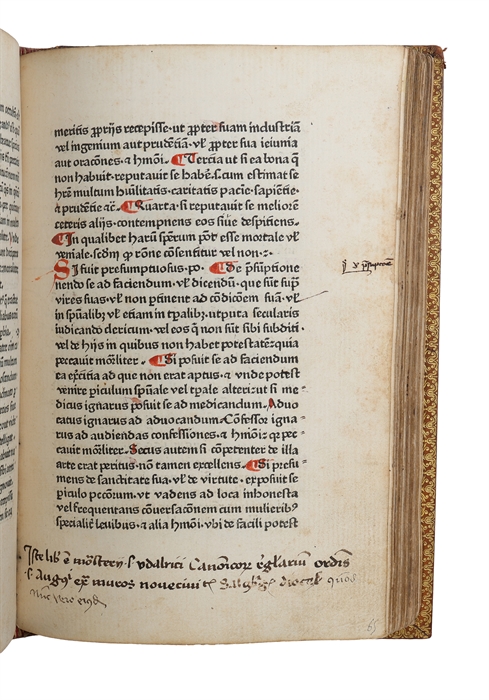 meritis ꝓprijs recepisse· ut ꝓpter suam industriā
vel ingenium aut prudētiā· vl̄ ꝓpter sua ieiunia
aut oracōnes· ⁊ hmōi· Tercia ut si ea bona q̄
non habuit· reputauit se habē· Cum estimat se
hr̄e multum hūilitatis· caritatis pacīe· sapiētie·
⁊ prudētie ⁊c̄· Quarta si reputauit se meliorē
ceteris alijs· contempnens eos siue despiciens·
In qualibet harū spērum pōt esse mortale vl̄
veniale· scdm̄ qꝫ rōne cōsentitur vel non·
Si fuit presumptuosus· De p̄suptione
nendo se ad faciendum· vl̄ dicendū· que sūt suꝑ
vires suas· vl̄ non ꝑtinent ad cōdicōem suā· vl̄
in spūalibꝫ vl̄ etiam in tꝑalibꝫ· utputa secularis
iudicando clericum· vel eos q̄ non sūt sibi subditi·
vel de hijs in quibus non habet potestatē· quia
peccauit morlīter· Si posuit se ad faciendum
ea ex̄citia ad que non erat aptus· ⁊ unde potest
venire ꝑiculum spūale vel tꝑale alteri· ut si me⸗
dicus ignarus posuit se ad medicandum· Aduo
catus ignarus ad aduocandum· Cōfessor igna⸗
rus ad audiendas confessiones· ⁊ hmōi· qꝫ pec⸗
cauit morlīter· Secus autem si cōpetenter de illa
arte erat peritus· nō tamen excellens· Si presu⸗
mens de sanctitate sua· vl̄ de virtute· exposuit se
ꝑiculo pccōrum· ut vadens ad loca inhonesta
vel frequentans cōuersacōnem cum mulieribus
specialit̄ leuibus· ⁊ alia hmōi· vbi de facili potest
Iste lib̄ ē mōsterij s· vdalrici Canonicoꝝ rēglarium ordīs
s· Augꝰ ex̄ muros noue ciuitꝭ Salczbgꝭ diocesꝭ quod
nūc vero eiꝰdē
65